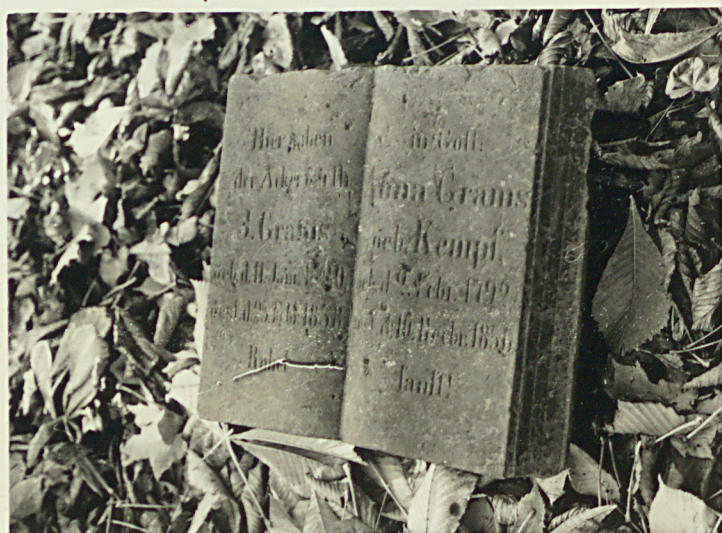 Hier ruhen
der Ackerwirth
J. Grams
geb. d. 11. Jan.
gest. d. 1858.
in Gott:
Anna Grams
geb. Kempf,
geb. d. 2. Febr. 1792,
d. 10. Decbr. 1856.
sanft!